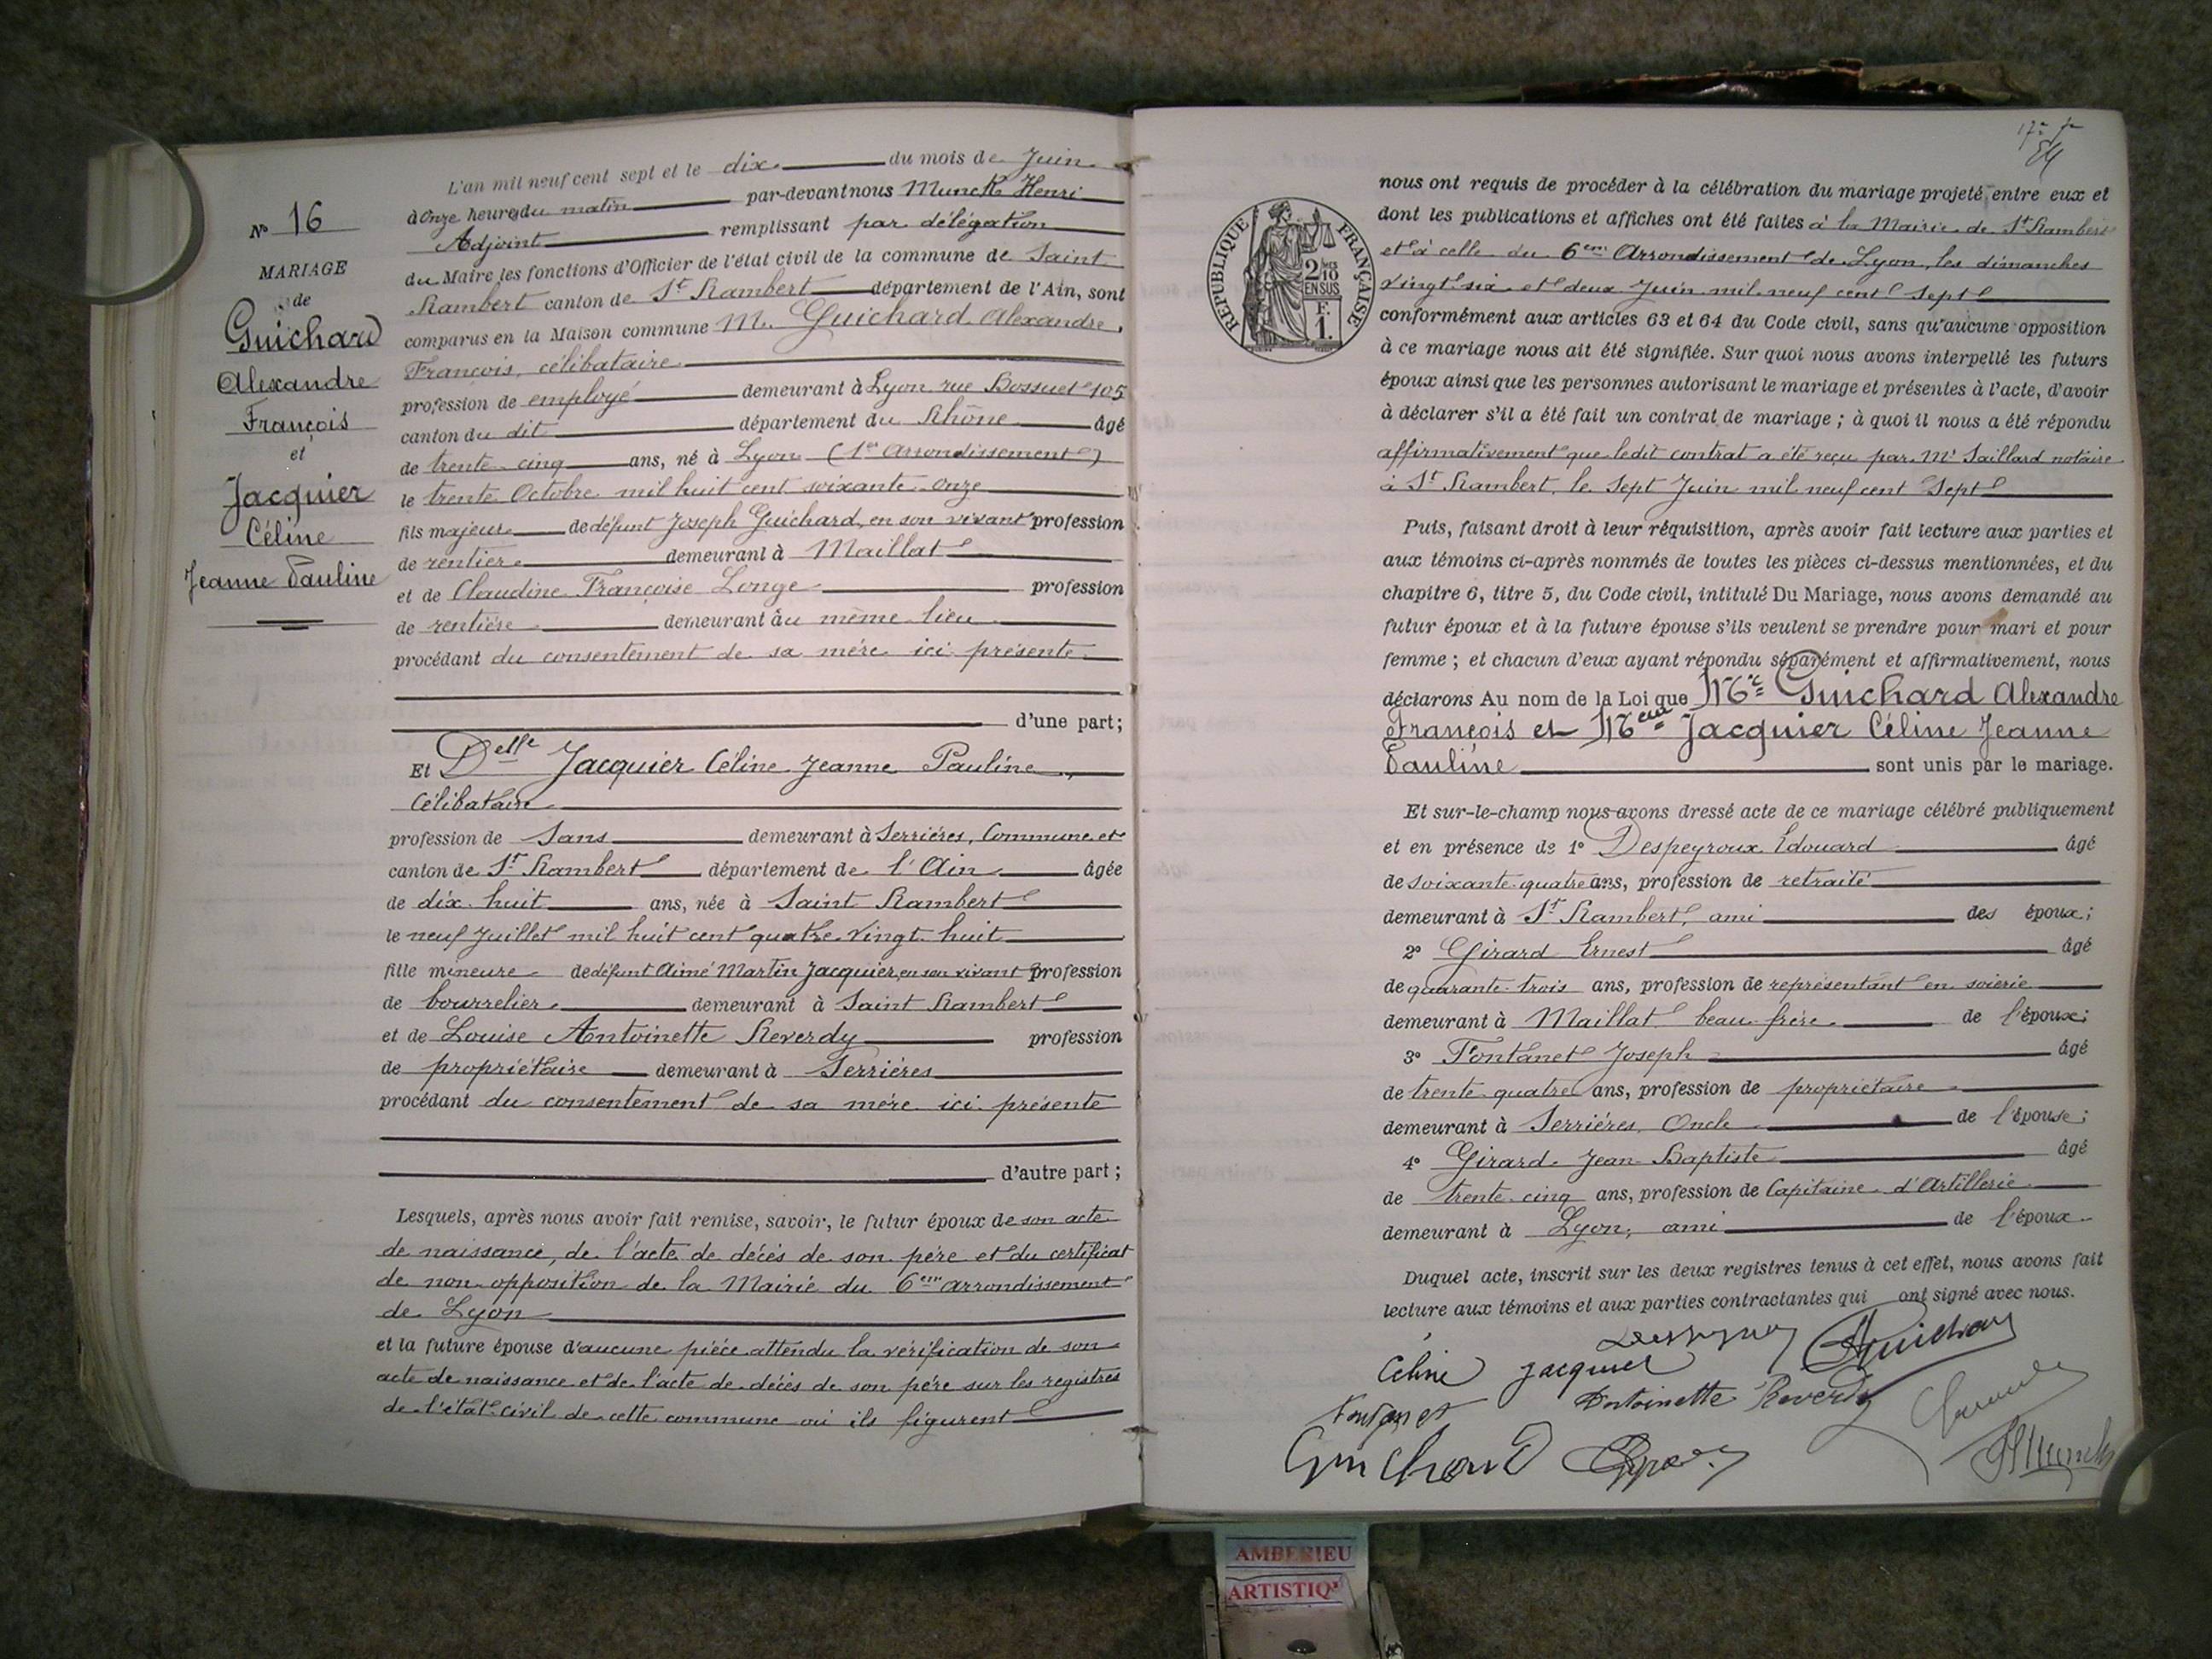 L'an mil neuf cent sept et le dix du mois de Juin
à onze heures du matin par-devant nous Munck Henri
Adjoint remplissant par délégation
du Maire les fonctions d'Officier de l'état civil de la commune de Saint
Rambert canton de St Rambert département de l'Ain, sont
comparus en la Maison commune M. Guichard Alexandre
François, célibataire
profession de employé demeurant à Lyon rue Bossuet 105
canton du dit département du Rhône âgé
de trente cinq ans, né à Lyon (1er Arrondissement)
le trente Octobre mil huit cent soixante onze
fils majeur de défunt Joseph Guichard, en son vivant profession
de rentier demeurant à Maillat
et de Claudine Françoise Longe profession
de rentière demeurant au même lieu
procédant du consentement de sa mère ici présente
d'une part;
Et Delle Jacquier Céline Jeanne Pauline,
Célibataire
profession de Sans demeurant à Serrières, Commune et
canton de St Rambert département de l'Ain âgée
de dix huit ans, née à Saint Rambert
le neuf Juillet mil huit cent quatre vingt huit
fille mineure de défunt Aimé Martin Jacquier, en son vivant profession
de bourrelier demeurant à Saint Rambert
et de Louise Antoinette Reverdy profession
de propriétaire demeurant à Serrières
procédant du consentement de sa mère ici présente
d'autre part;
Lesquels, après nous avoir fait remise, savoir, le futur époux de son acte
de naissance, de l'acte de décès de son père et du certificat
de non opposition de la Mairie du 6em arrondissement
de Lyon
et la future épouse d'aucune pièce attendu la vérification de son
acte de naissance et de l'acte de décès de son père sur les registres
de l'état civil de cette commune où ils figurent
No 16
MARIAGE
de
Guichard
Alexandre
François
et
Jacquier
Céline
Jeanne Pauline
RÉPUBLIQUE FRANÇAISE
2/10
EN SUS
F.
1.
nous ont requis de procéder à la célébration du mariage projeté entre eux et
dont les publications et affiches ont été faites à la Mairie de St Rambert
et à celle du 6em Arrondissement de Lyon, les dimanches
vingt six et deux Juin mil neuf cent Sept
conformément aux articles 63 et 64 du Code civil, sans qu'aucune opposition
à ce mariage nous ait été signifiée. Sur quoi nous avons interpellé les futurs
époux ainsi que les personnes autorisant le mariage et présentes à l'acte, d'avoir
à déclarer s'il a été fait un contrat de mariage ; à quoi il nous a été répondu
affirmativement que ledit contrat a été reçu par Me Saillard notaire
à St Rambert, le Sept Juin mil neuf cent Sept
Puis, faisant droit à leur réquisition, après avoir fait lecture aux parties et
aux témoins ci-après nommés de toutes les pièces ci-dessus mentionnées, et du
chapitre 6, titre 5, du Code civil, intitulé Du Mariage, nous avons demandé au
futur époux et à la future épouse s'ils veulent se prendre pour mari et pour
femme ; et chacun d'eux ayant répondu séparément et affirmativement, nous
déclarons Au nom de la Loi que Guichard Alexandre
François et Jacquier Céline Jeanne
Pauline sont unis par le mariage.
Et sur-le-champ nous avons dressé acte de ce mariage célébré publiquement
et en présence de 1o Despeyroux Edouard âgé
de soixante quatre ans, profession de retraité
demeurant à St Rambert, ami des époux;
2o Girard Ernest âgé
de quarante trois ans, profession de représentant en soierie
demeurant à Maillat beau frère de l'époux;
3o Fontanet Joseph âgé
de trente quatre ans, profession de propriétaire
demeurant à Serrières, Oncle de l'épouse;
4o Girard Jean Baptiste âgé
de trente cinq ans, profession de Capitaine d'Artillerie
demeurant à Lyon, ami de l'époux
Duquel acte, inscrit sur les deux registres tenus à cet effet, nous avons fait
lecture aux témoins et aux parties contractantes qui ont signé avec nous.
Guichard
Céline Jacquier
Antoinette Reverdy
Fontanet
Guichard
HMunck
AMBERIEU
ARTISTIQ